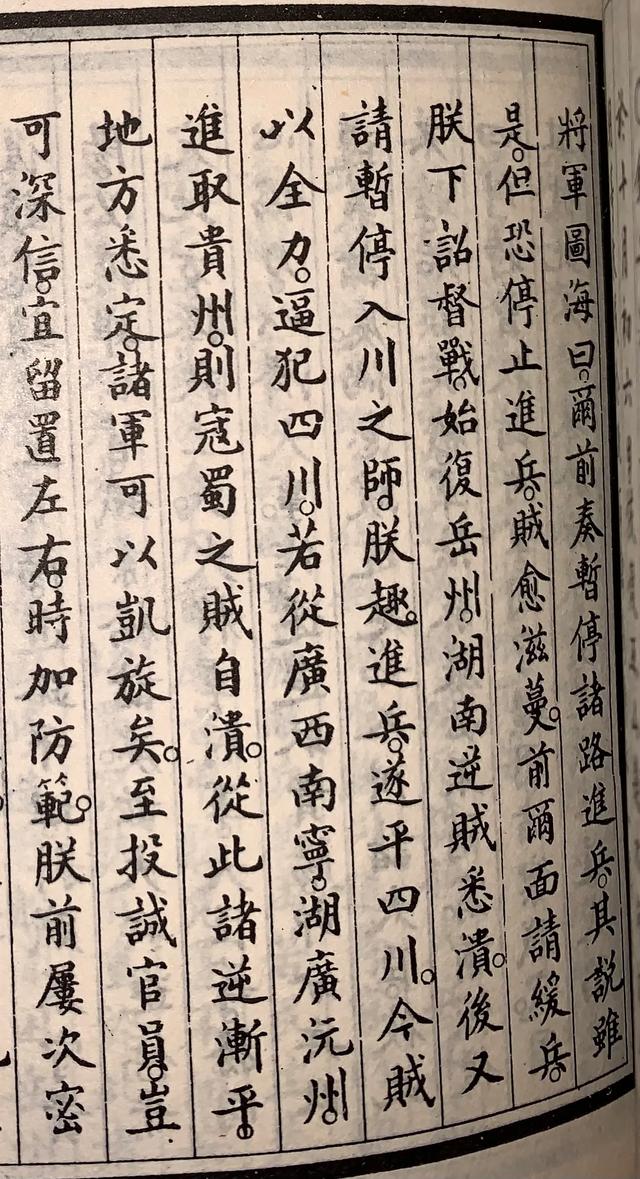 將軍圖海曰。爾前奏暫停諸路進兵。其説雖
是。但恐停止進兵。賊愈滋蔓。前爾面請緩兵。
朕下詔督戰。始復岳州。湖南逆賊悉潰。後又
請暫停入川之師。朕趣。進兵。遂平四川。今賊
以全力。逼犯四川。若從廣西南寧。湖廣沅州。
進取貴州。則寇蜀之賊自潰。從此諸逆漸平。
地方悉定。諸軍可以凱旋矣。至投誠官員。豈
可深信。宜留置左右。時加防範。朕前屢次密